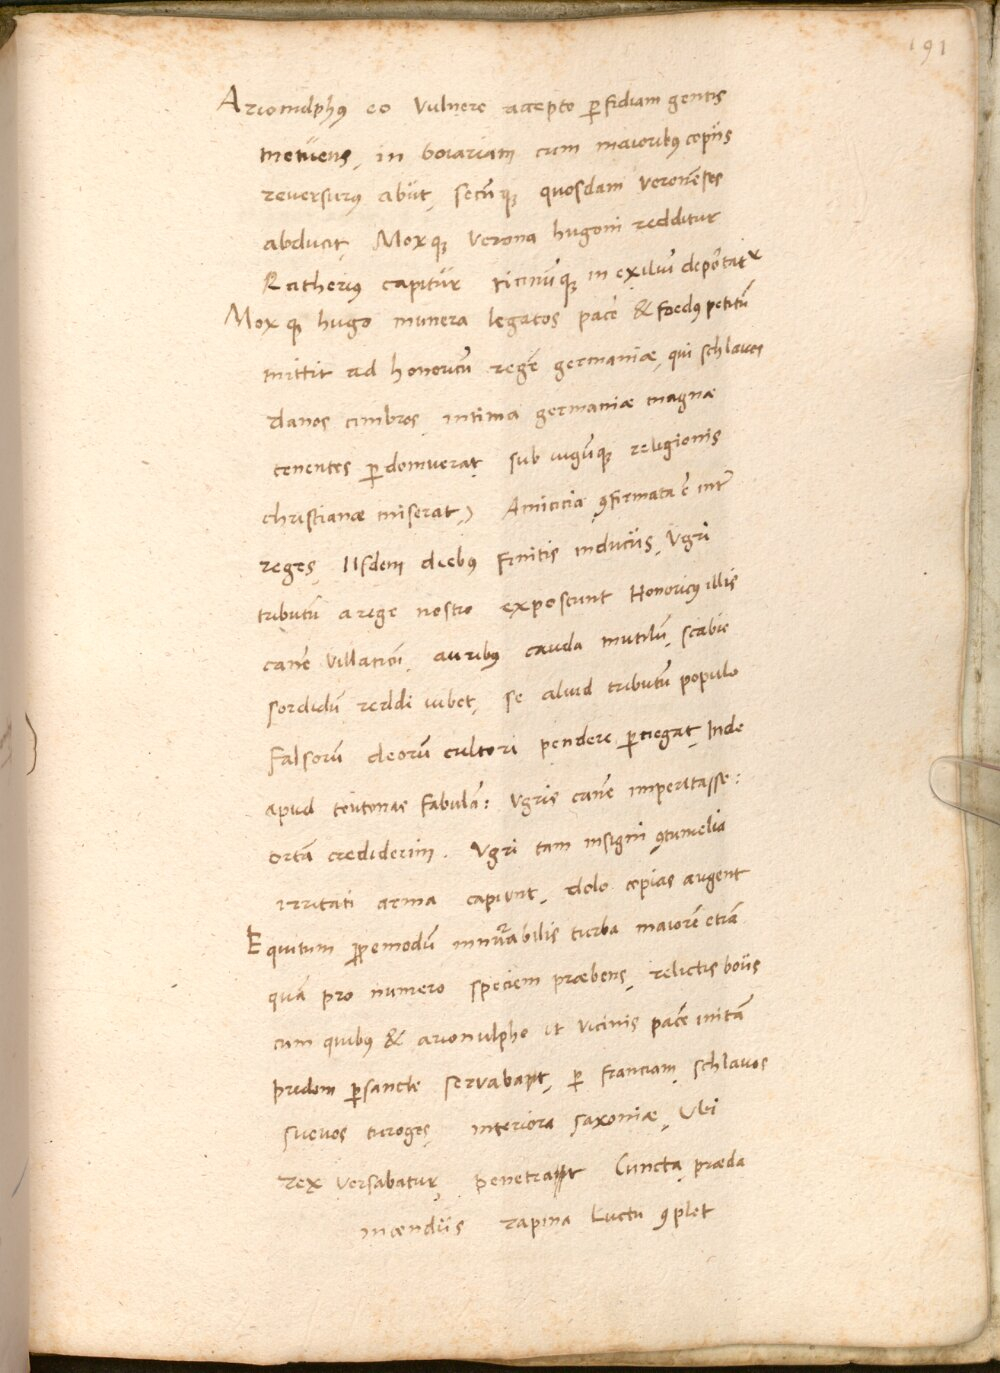 191
Arionulphꝰ eo vulnere accepto ꝑfidiam gentis
metuens, in boiariam cum maioribꝰ copiis
reversurꝰ abiit, secūqꝫ quosdam veronēses
abducit, Moxqꝫ verona hugoni redditur
Ratherius capitur ticinūqꝫ in exiliū deportatᵘʳ
Moxqꝫ hugo munera legatos pacē & foedꝰ petitū
mittit ad honoricū regē germaniæ, qui schlavos
danos cimbros, intima germaniæ magnæ
tenentes ꝑdomuerat, sub iugūqꝫ religionis
christianæ miserat,) Amicicia ꝯfirmata ē inter
reges, IIsdem diebꝰ finitis induciis, Ugri
tributū a rege nostro exposcunt Honoricꝰ illis
canē villaticū, auribꝰ cauda mutilū, scabie
sordidū reddi iubet, se aliud tributū populo
falsorū deorū cultori pendere ꝑnegat, Inde
apud teutonas fabulā: Ugris canē imperitasse:
ortā crediderim. Ugri tam insigni ꝯtumelia
irritati arma capiunt, dolo copias augent
Equitum ꝓpemodū innūrabilis turba maiorē etiā
quā pro numero speciem præbens, relictis boiis
cum quibꝰ & arionulpho ut vicinis pacē initā
pridem ꝑsancte servabant, ꝑ franciam, schlavos
suevos turoges, interiora saxoniæ, Ubi
rex versabatur, penetrant Cuncta præda
incendiis rapina Luctu ꝯplet